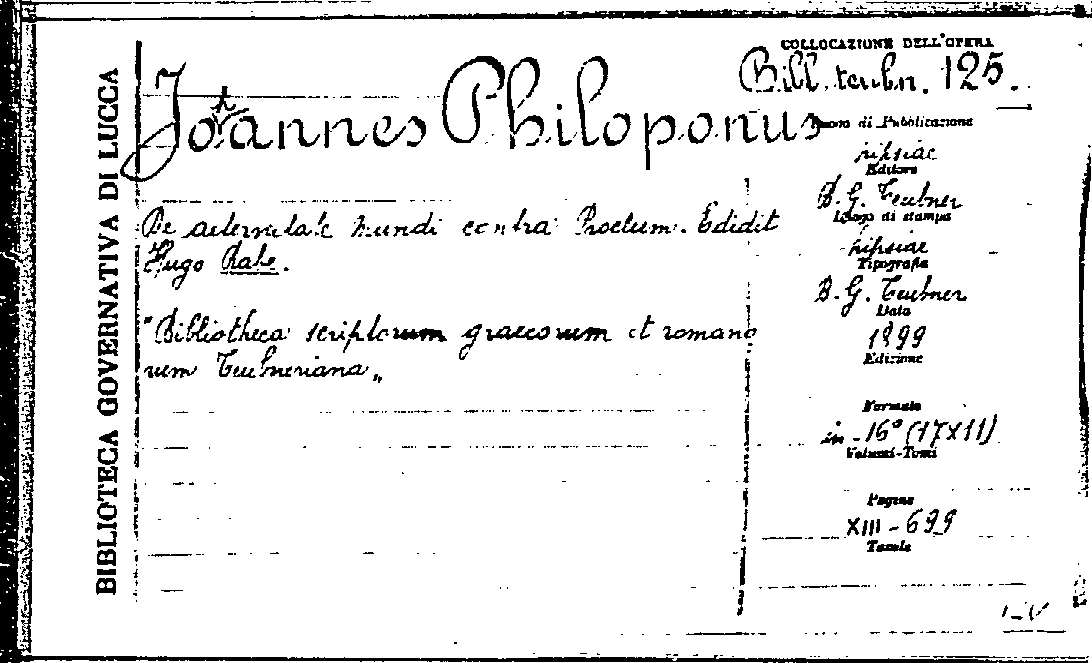 BIBLIOTECA GOVERNATIVA DI LUCCA
COLLOCAZIONE DELL'OPERA
Bibl. teubn. 125.
Joannes Philoponus
De aeternitate mundi contra Proclum. Edidit
Hugo Rabe.
"Bibliotheca scriptorum graecorum et romano
rum Teubneriana„
Luogo di Pubblicazione
Lipsiae
Editore
B. G. Teubner
Luogo di stampa
Lipsiae
Tipografia
B. G. Teubner
Data
1899
Edizione
Formato
in-16° (17x11)
Volumi-Tomi
Pagine
XIII-699
Tavole